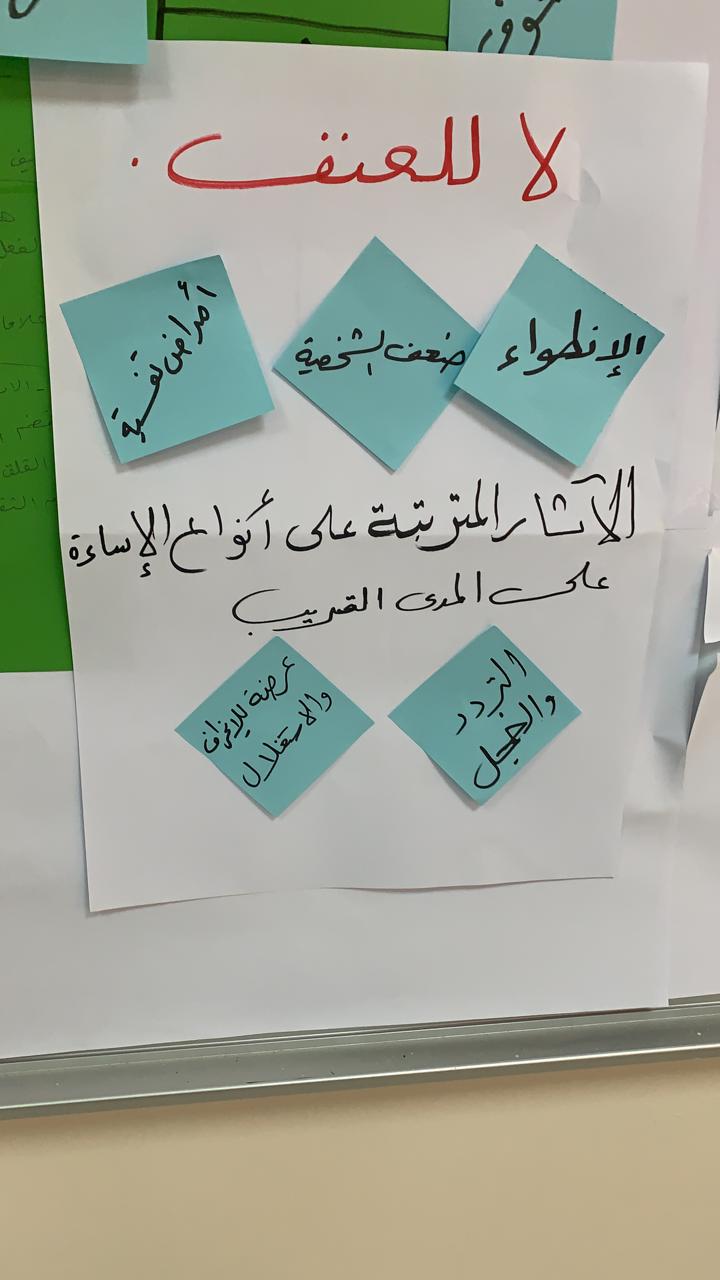 لا للعنف.
الإنطواء
ضعف الشخصية
أمراض نفسية
الآثار المترتبة على أنواع الإساءة
على المدى القريب
التردد
والخجل
عرضة للإنحراف
والاستغلال